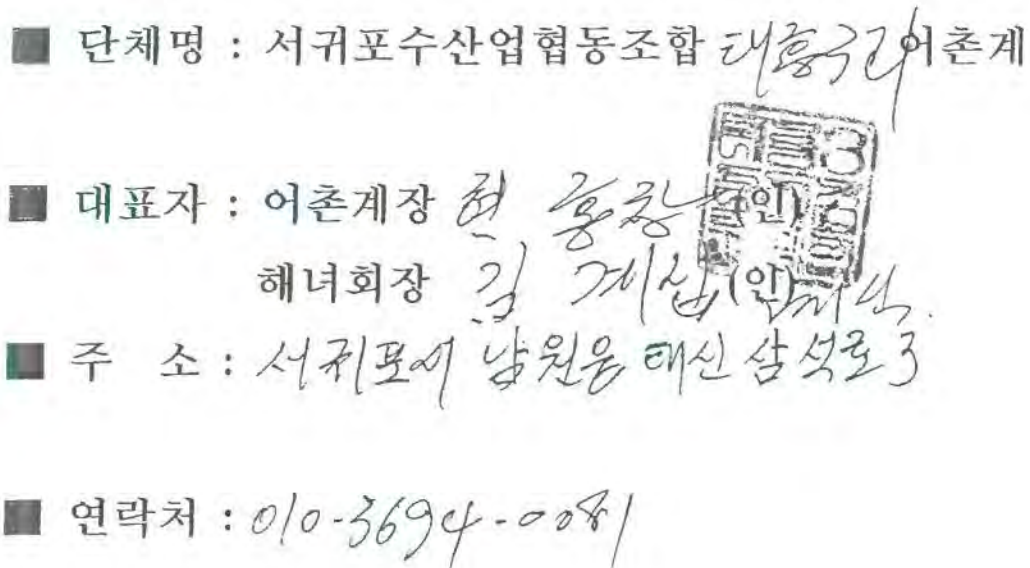 ■ 단체명 : 서귀포수산업협동조합 태흥3리어촌계
■ 대표자 : 어촌계장 현 홍창 (인)
해녀회장 김 계 (인)
■ 주 소 : 서귀포시 남원읍 태신삼석로 3
■ 연락처 : 010-3694-0081